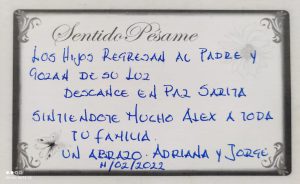 Sentido Pésame
LOS HIJOS REGRESAN AL PADRE Y
GOZAN DE SU LUZ
DESCANCE EN PAZ SARITA
SINTIENDOTE MUCHO ALEX A TODA
TU FAMILIA.
UN ABRAZO. ADRIANA Y JORGE
11/02/2022